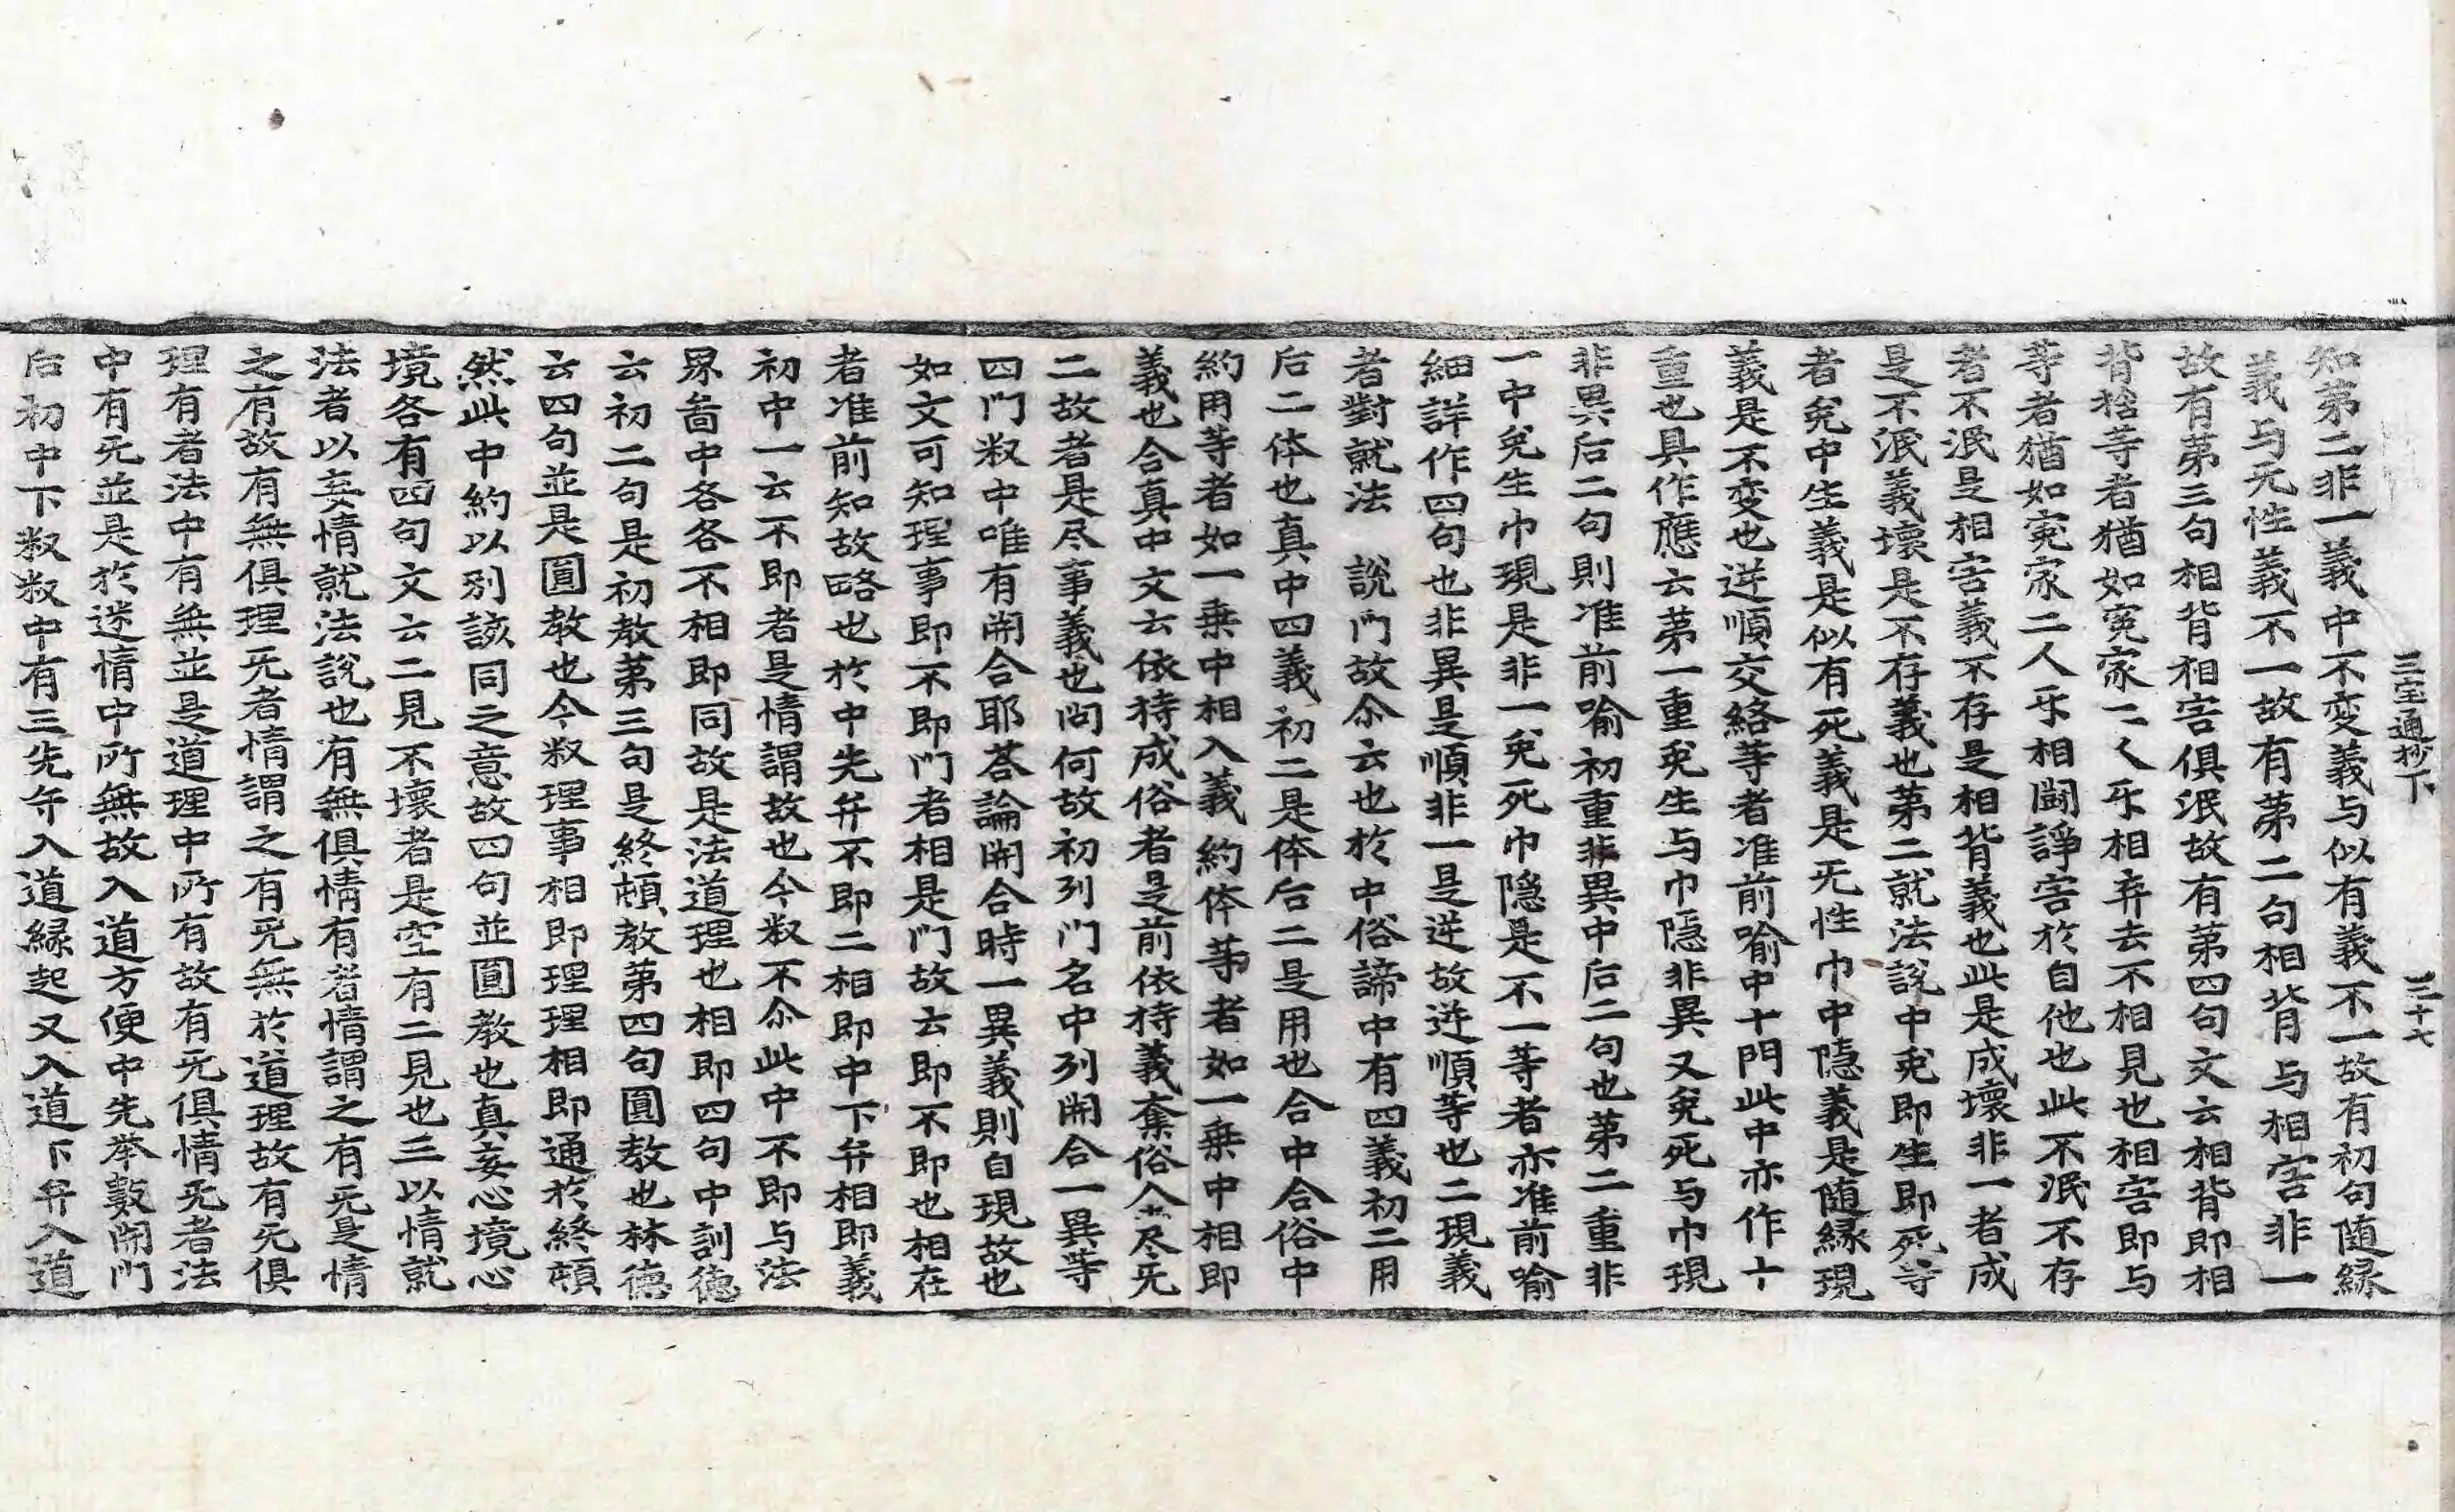 三宝通抄下　三十七
知第二非一義中不変義与似有義不一故有初句随縁
義与无性義不一故有第二句相背与相害非一
故有第三句相背相害俱泯故有第四句文云相背即相
背捨等者猶如寃家二人乐相弃去不相見也相害即与
等者猶如寃家二人乐相鬪諍害於自他也此不泯不存
者不泯是相害義不存是相背義也此是成壞非一者成
是不泯義壞是不存義也第二就法說中兎即生即死等
者兎中生義是似有死義是无性巾中隱義是随縁現
義是不变也逆順交絡等者准前喻中十門此中亦作十
重也具作應云第一重兎生与巾隱非異又兎死与巾現
非異后二句則准前喻初重非異中后二句也第二重非
一中兎生巾現是非一兎死巾隱是不一等者亦准前喻
細詳作四句也非異是順非一是逆故逆順等也二現義
者對就法　說門故尒云也於中俗諦中有四義初二用
后二体也真中四義初二是体后二是用也合中合俗中
約用等者如一乗中相入義約体等者如一乗中相即
義也合真中文云依待成俗者是前依待義奪俗入尽无
二故者是尽事義也問何故初列門名中列開合一異等
四門叙中唯有開合耶荅論開合時一異義則自現故也
如文可知理事即不即門者相是門故云即不即也相在
者准前知故略也於中先弁不即二相即中下弁相即義
初中一云不即者是情謂故也今叙不尒此中不即与法
界啚中各各不相即同故是法道理也相即四句中訓德
云初二句是初教第三句是終頓教第四句圓教也林德
云四句並是圓教也今叙理事相即理理相即通於終頓
然此中約以別該同之意故四句並圓教也真妄心境心
境各有四句文云二見不壞者是空有二見也三以情就
法者以妄情就法說也有無俱情有者情謂之有无是情
之有故有無俱理无者情謂之有无無於道理故有无俱
理有者法中有無並是道理中所有故有无俱情无者法
中有无並是於迷情中所無故入道方便中先举數開門
后初中下叙叙中有三先弁入道縁起又入道下弁入道